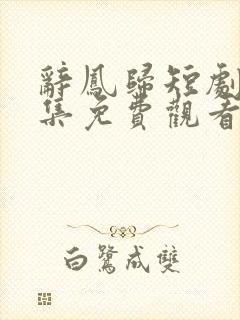 辭鳳歸短劇
集免費觀看
白鷺成雙